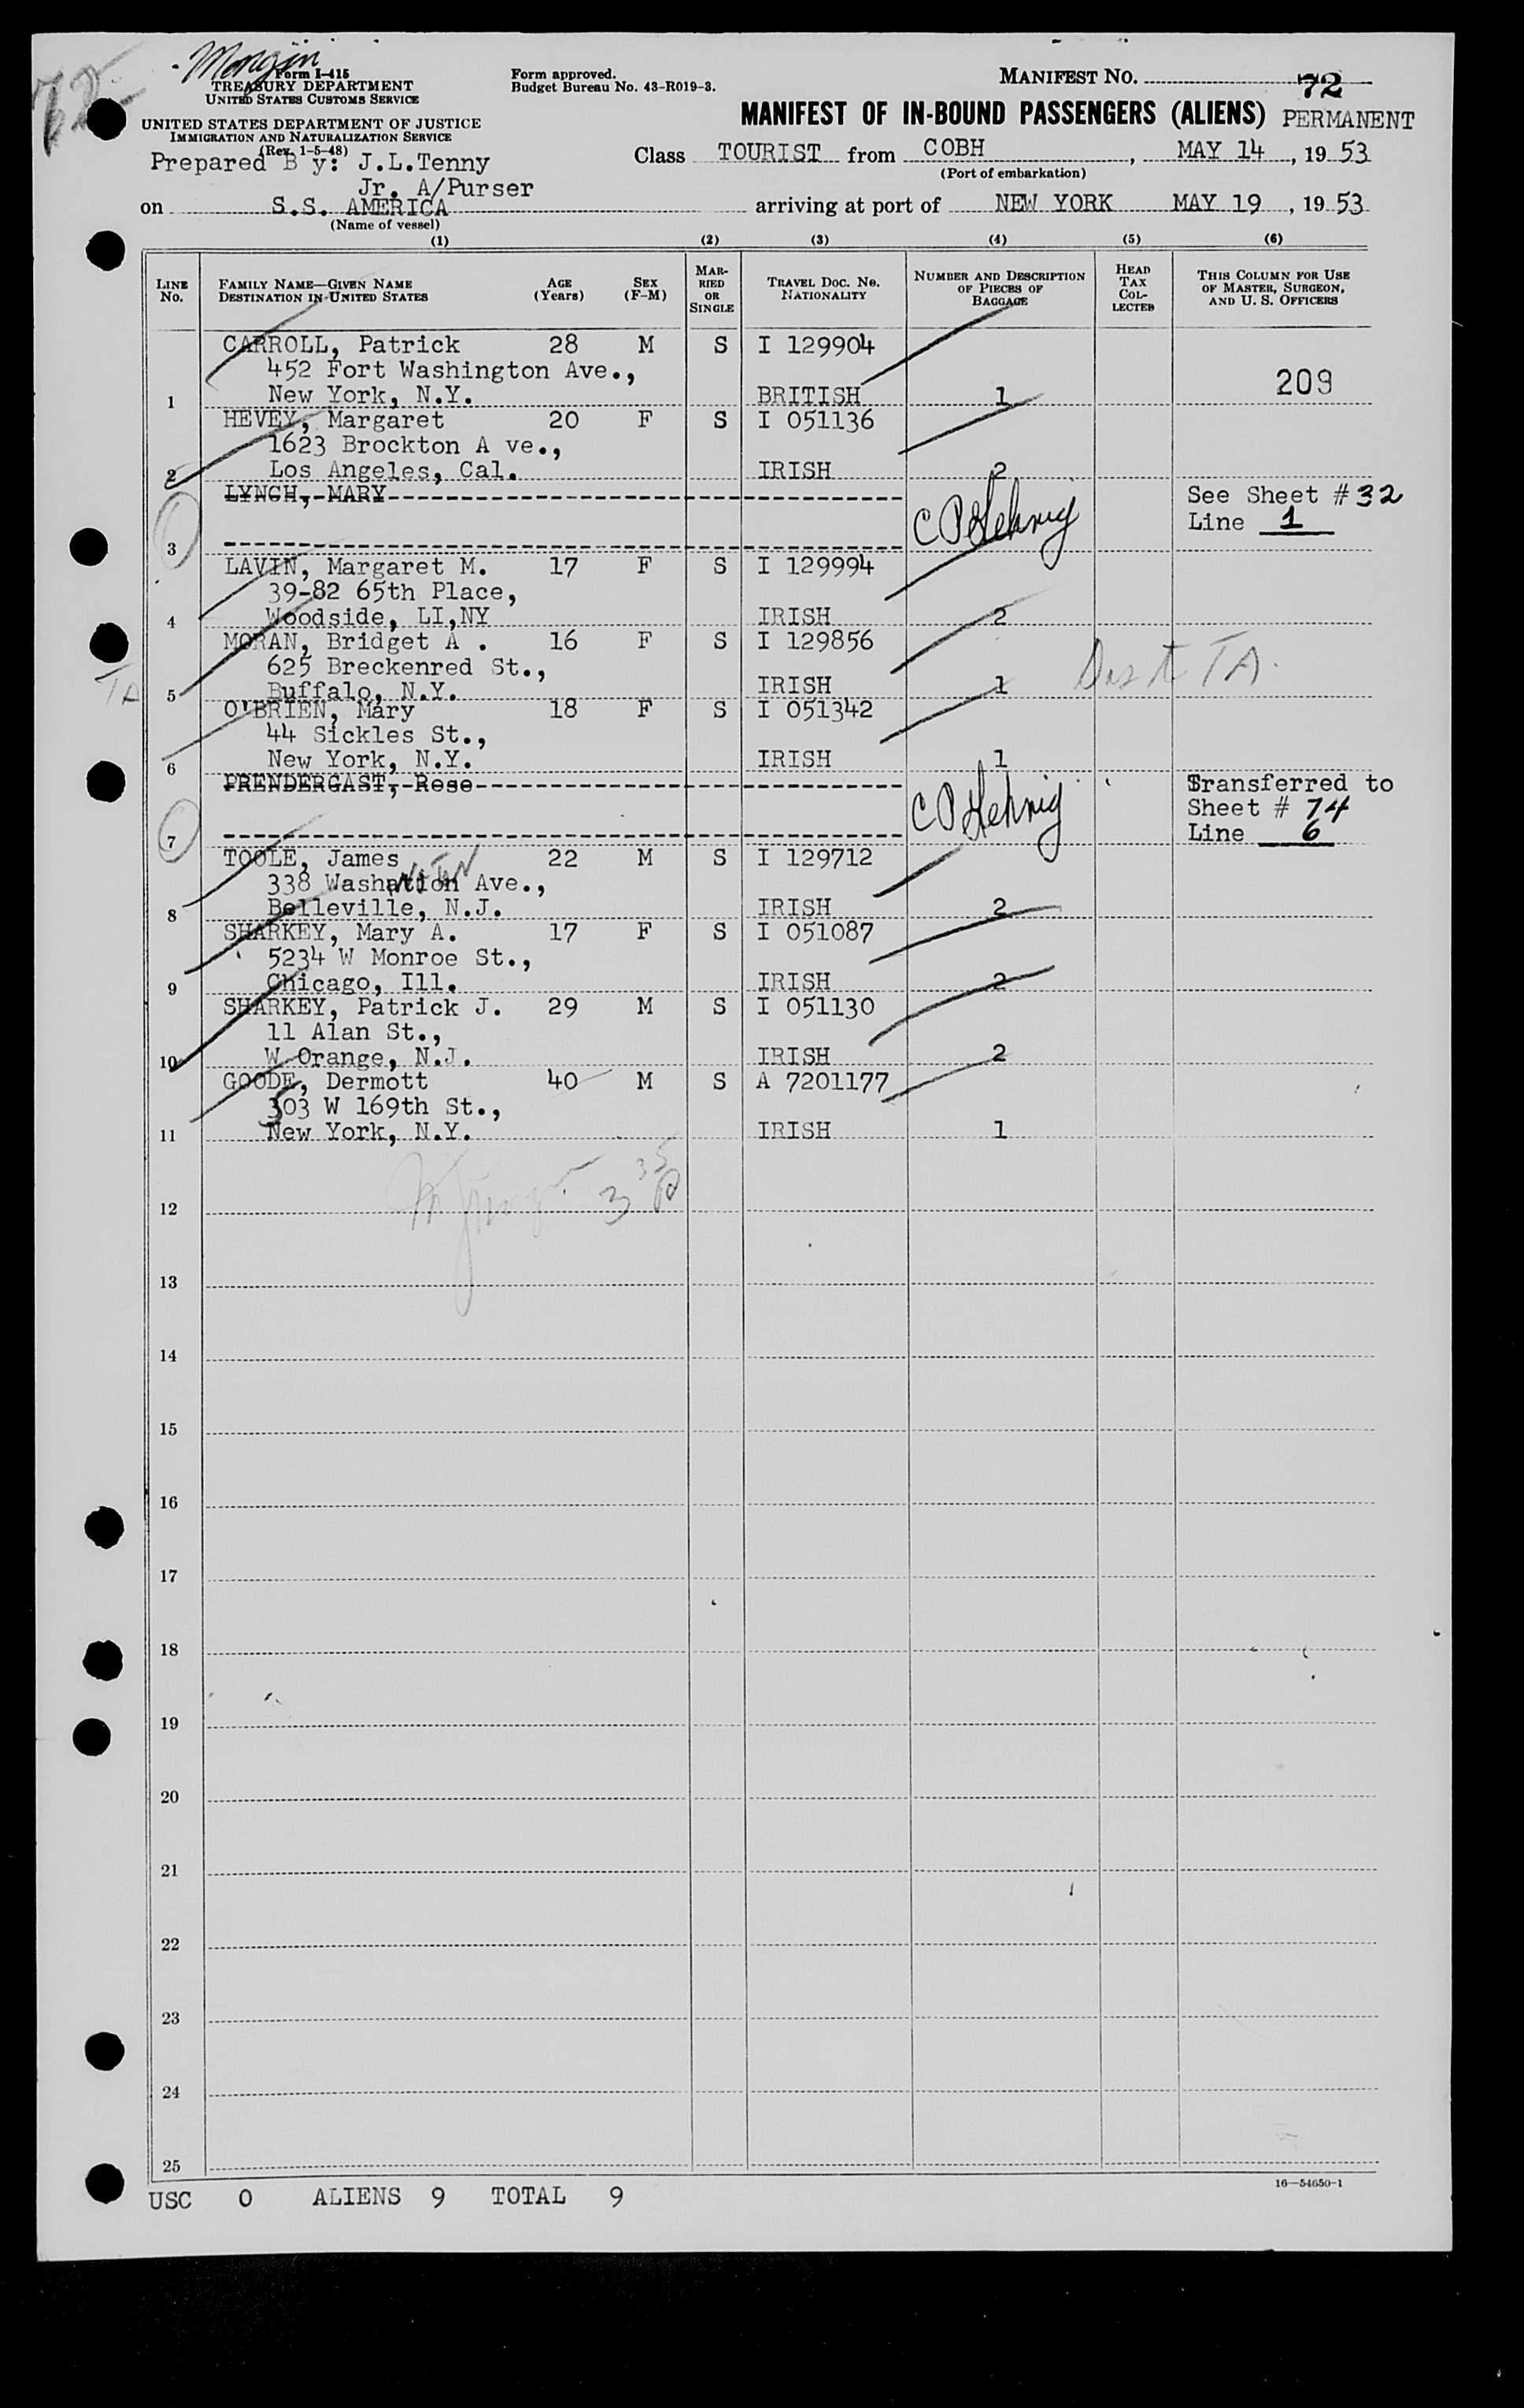 Form I-415
TREASURY DEPARTMENT
UNITED STATES CUSTOMS SERVICE
UNITED STATES DEPARTMENT OF JUSTICE
IMMIGRATION AND NATURALIZATION SERVICE
(Rev. 1-5-48)
Form approved.
Budget Bureau No. 43-R019-3.
MANIFEST NO. 72
MANIFEST OF IN-BOUND PASSENGERS (ALIENS) PERMANENT
Prepared B y: J.L.Tenny
Jr. A/Purser
Class TOURIST from COBH, MAY 14, 19 53
(Port of embarkation)
on S.S. AMERICA arriving at port of NEW YORK MAY 19, 19 53
(Name of vessel)
(1) (2) (3) (4) (5) (6)
LINE No. FAMILY NAME—GIVEN NAME DESTINATION IN UNITED STATES AGE (Years) SEX (F-M) MARRIED OR SINGLE TRAVEL DOC. No. NATIONALITY NUMBER AND DESCRIPTION OF PIECES OF BAGGAGE HEAD TAX COLLECTED THIS COLUMN FOR USE OF MASTER, SURGEON, AND U. S. OFFICERS
CARROLL, Patrick 28 M S I 129904
452 Fort Washington Ave.,
1 New York, N.Y. BRITISH 1 209
HEVEY, Margaret 20 F S I 051136
1623 Brockton A ve.,
2 Los Angeles, Cal. IRISH 2
LYNCH, MARY See Sheet # 32
3 Line 1
LAVIN, Margaret M. 17 F S I 129994
39-82 65th Place,
4 Woodside, LI,NY IRISH 2
MORAN, Bridget A . 16 F S I 129856
625 Breckenred St.,
TA 5 Buffalo, N.Y. IRISH 1
O'BRIEN, Mary 18 F S I 051342
44 Sickles St.,
6 New York, N.Y. IRISH 1
PRENDERGAST, Rose Transferred to
Sheet # 74
7 Line 6
TOOLE, James 22 M S I 129712
338 Washation Ave.,
8 Belleville, N.J. IRISH 2
SHARKEY, Mary A. 17 F S I 051087
5234 W Monroe St.,
9 Chicago, Ill. IRISH 2
SHARKEY, Patrick J. 29 M S I 051130
11 Alan St.,
10 W Orange, N.J. IRISH 2
GOODE, Dermott 40 M S A 7201177
303 W 169th St.,
11 New York, N.Y. IRISH 1
12
13
14
15
16
17
18
19
20
21
22
23
24
25
16—54650-1
USC 0 ALIENS 9 TOTAL 9